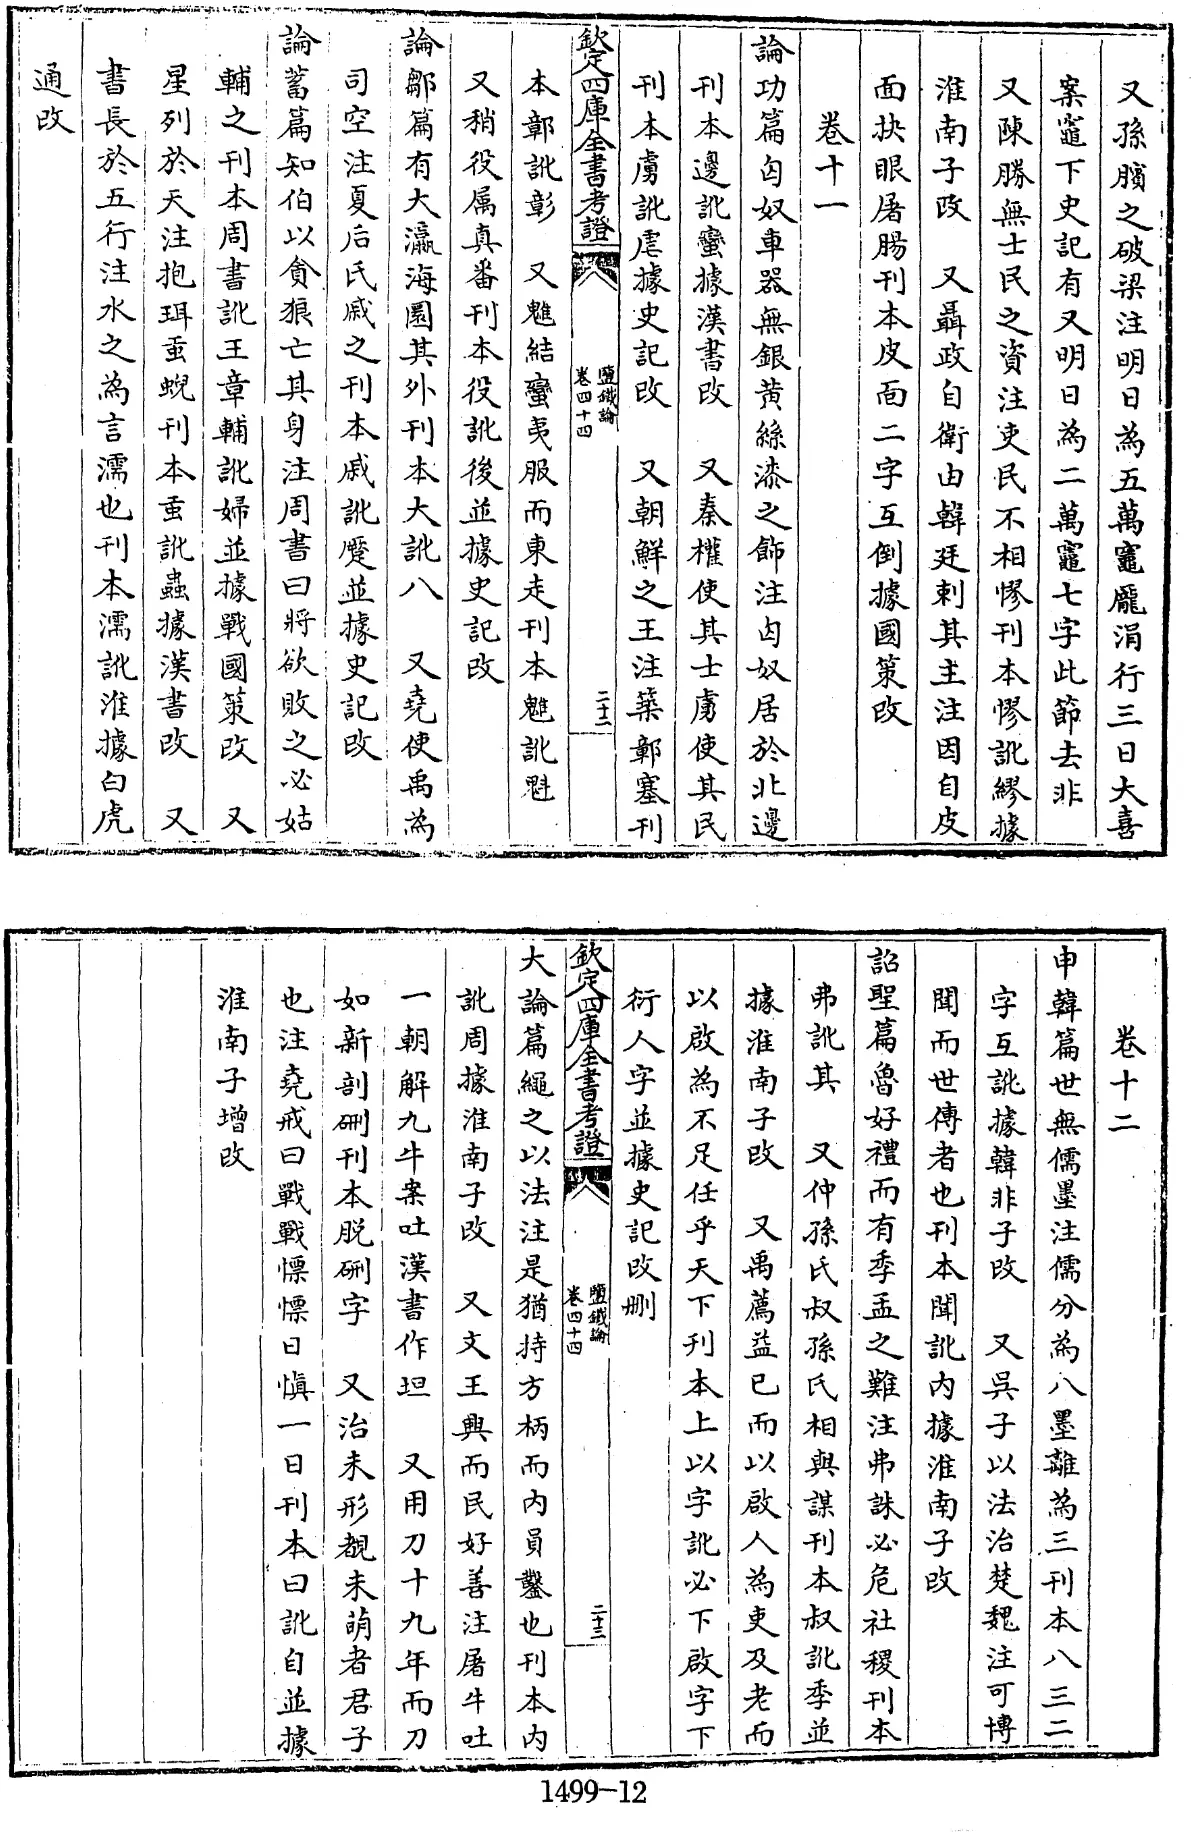 又孫臏之破梁注明日為五萬竈龐涓行三日大喜
案竈下史記有又明日為二萬竈七字此節去非
又陳勝無士民之資注吏民不相憀刊本憀訛繆據
淮南子改　又聶政自衛由韓廷刺其主注因自皮
面抉眼屠腸刊本皮面二字互倒據國策改
卷十一
論功篇匈奴車器無銀黄絲漆之飾注匈奴居於北邊
刊本邊訛蠻據漢書改　又秦權使其士虜使其民
刊本虜訛虐據史記改　又朝鮮之王注築鄣塞刊
欽定四庫全書考證
鹽鐵論
卷四十四
二十二
本鄣訛彰　又魋結蠻夷服而東走刊本魋訛魁
又稍役属真番刊本役訛後並據史記改
論鄒篇有大瀛海圜其外刊本大訛八　又堯使禹為
司空注夏后氏戚之刊本戚訛蹙並據史記改
論蓄篇知伯以貪狼亡其身注周書曰將欲敗之必姑
輔之刊本周書訛王章輔訛婦並據戰國策改　又
星列於天注抱珥䖝蜺刊本䖝訛蟲據漢書改　又
書長於五行注水之為言濡也刊本濡訛淮據白虎
通改
卷十二
申韓篇世無儒墨注儒分為八墨離為三刊本八三二
字互訛據韓非子改　又吳子以法治楚魏注可博
聞而世傳者也刊本聞訛内據淮南子改
詔聖篇魯好禮而有季孟之難注弗誅必危社稷刊本
弗訛其　又仲孫氏叔孫氏相與謀刊本叔訛季並
據淮南子改　又禹薦益已而以啟人為吏及老而
以啟為不足任乎天下刊本上以字訛必下啟字下
衍人字並據史記改刪
欽定四庫全書考證
鹽鐵論
卷四十四
二十三
大論篇繩之以法注是猶持方柄而内員鑿也刊本内
訛周據淮南子改　又文王興而民好善注屠牛吐
一朝解九牛案吐漢書作坦　又用刀十九年而刀
如新剖硎刊本脱硎字　又治未形覩未萌者君子
也注堯戒曰戰戰慄慄日慎一日刊本曰訛自並據
淮南子增改
1499-12